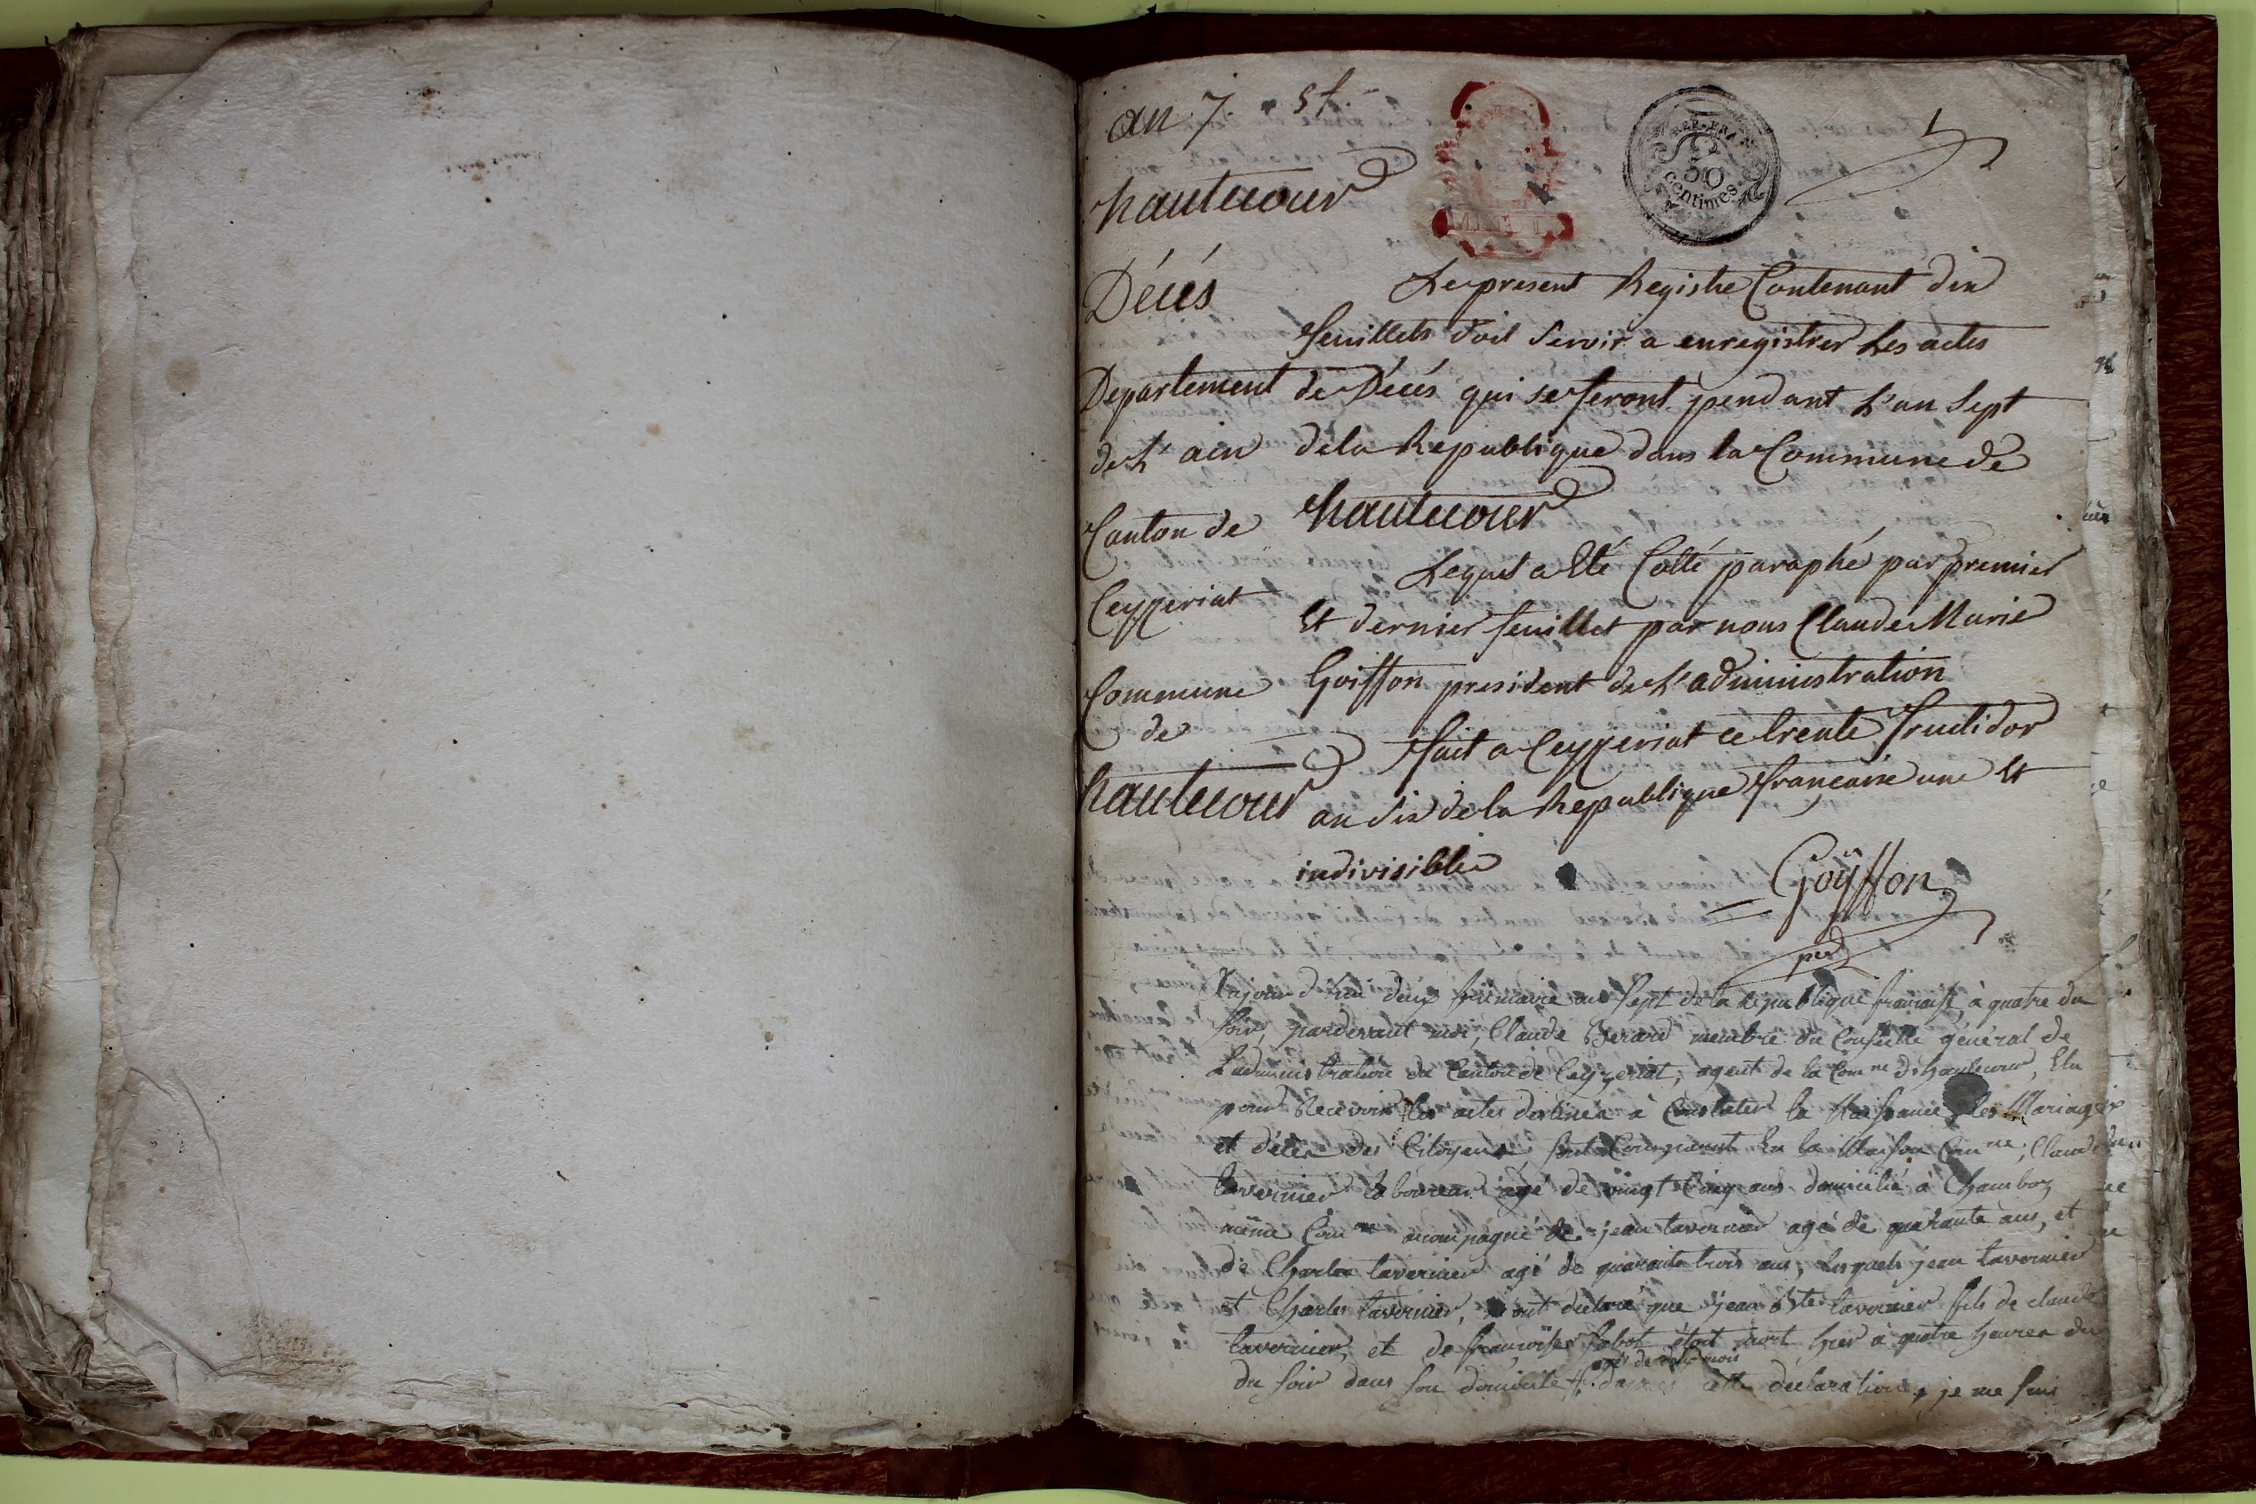 an 7. 5f.
hautecour
REP. FRA
50
centimes
1
Décés
Le present Registre Contenant dix
feuillets doit servir a enregistrer Les actes
Departement de Décés qui se feront pendant L'an Sept
de L'ain de la Republique dans la Commune de
Canton de hautecour
Lequel a Eté Cotté paraphé par premier
Ceyzeriat Et dernier feuillet par nous Claude Marie
Commune Goiffon president de L'administration
de fait a Ceyzeriat ce trente fructidor
hautecour an Six de la Republique francaise une Et
indivisible
Goÿffon
pred
Aujourd'hui deux frimaire an Sept de la republique francaise, à quatre du
soir, pardevant moi, Claude Berard membre du Conseille général de
L'administration du Canton de Ceyzeriat, agent de la Comne d'hautecour, Elu
pour Recevoir les actes destinés à Constater la Naissance, les Mariages
et décès des Citoyens, sont Comparant En la Maison Comne, Claude
tavernier laboureur agé de vingt Cinq ans domicilié à Chamboz
même Comne acompagné de jean tavernier agé de quarante ans, et
de Charles tavernier agé de quarante trois ans, lesquels jean tavernier
et Charles tavernier, m'ont déclaré que jean Bte tavernier fils de claude
tavernier, et de françoise étoit mort hier à quatre heures du
du soir dans son domicile agé de mois cette declaration, je me suis